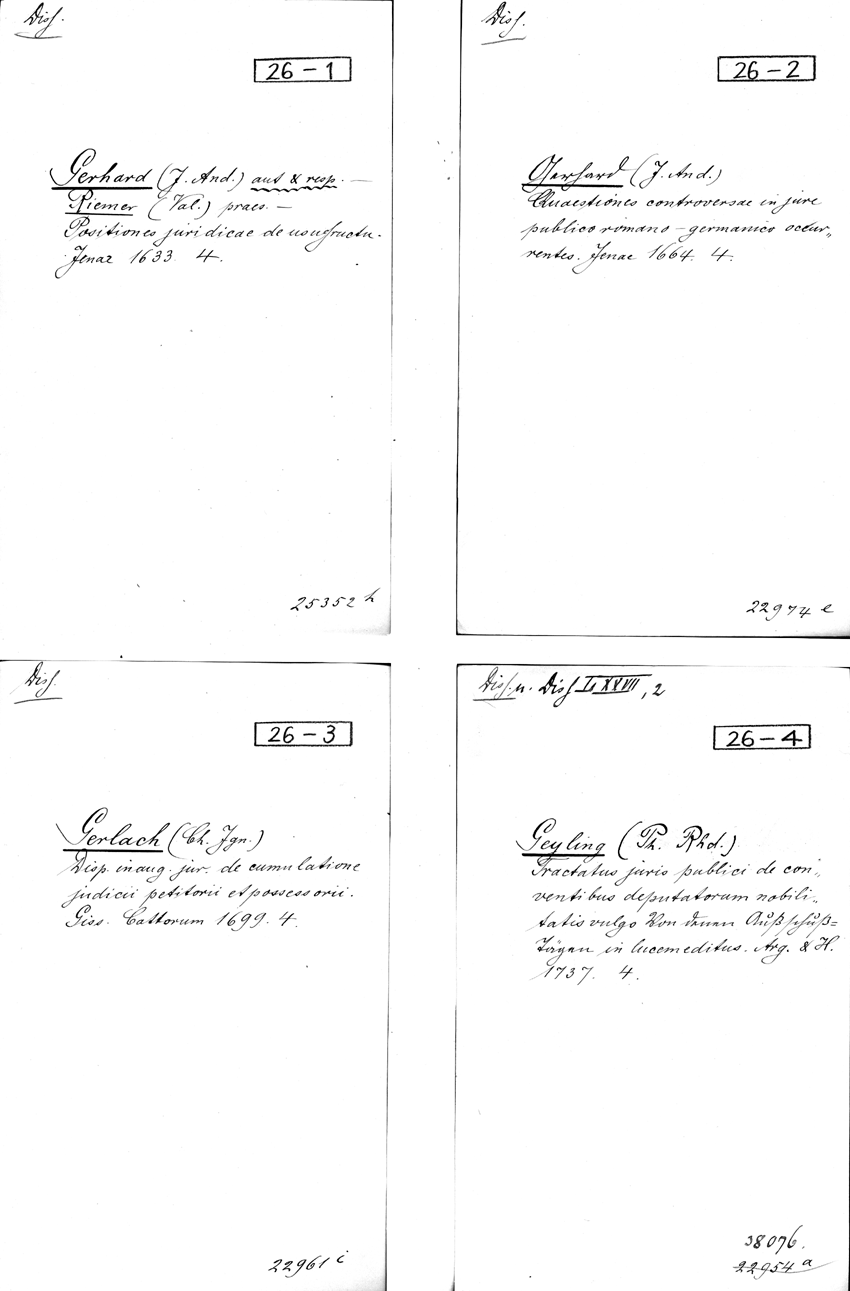 Diss.
26 – 1
Gerhard (J. And.) aut & resp. —
Riemer (Val.) praes. —
Positiones juridicae de usufructu.
Jenae 1633. 4.
25352 h
Diss.
26 – 2
Gerhard (J. And.)
Quaestiones controversae in jure
publico romano – germanico occur„
rentes. Jenae 1664. 4.
22974 e
Diss.
26 – 3
Gerlach (Ch. Ign.)
Disp. inaug. jur. de cumulatione
judicii petitorii et possessorii.
Giss. Cattorum 1699. 4.
22961 i
Diss. u. Diss LXXVII, 2
26 – 4
Geyling (Th. Rhd.)
Tractatus juris publici de con„
ventibus deputatorum nobili„
tatis vulgo Von denen Außschuß=
Tägen in lucem editus. Arg. & H.
1737. 4.
38076.
22954 a